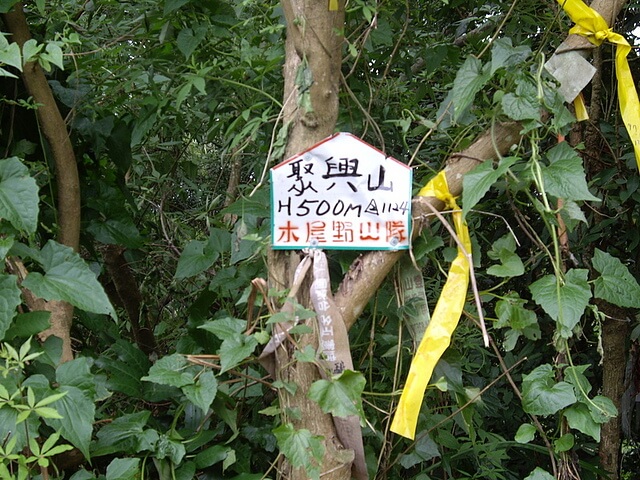 聚興山
H500M△1124
木屋野山隊